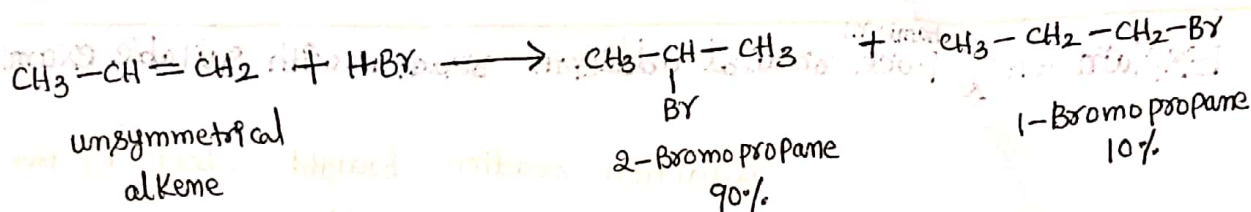 CH3-CH=CH2 + HBr ⟶ CH3-CH-CH3 + CH3-CH2-CH2-Br
Br
unsymmetrical alkene
2-Bromopropane
90%
1-Bromopropane
10%